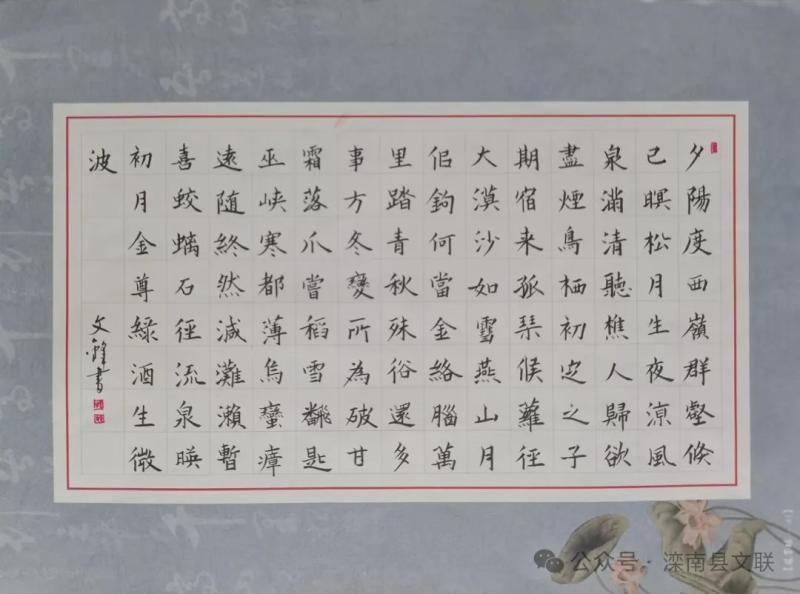 夕陽度西嶺群壑倏
已暝松月生夜涼風
泉滿清聽樵人歸欲
盡煙鳥栖初定之子
期宿来孤琴候蘿徑
大漠沙如雪燕山月
佀鉤何當金絡腦萬
里踏青秋殊俗還多
事方冬變所為破甘
霜落爪嘗稻雪翻匙
巫峽寒都薄烏蠻瘴
遠随終然減灘瀨暫
喜蛟螭石徑流泉暎
初月金尊綠酒生微
波
文 書
公众号·滦南县文联